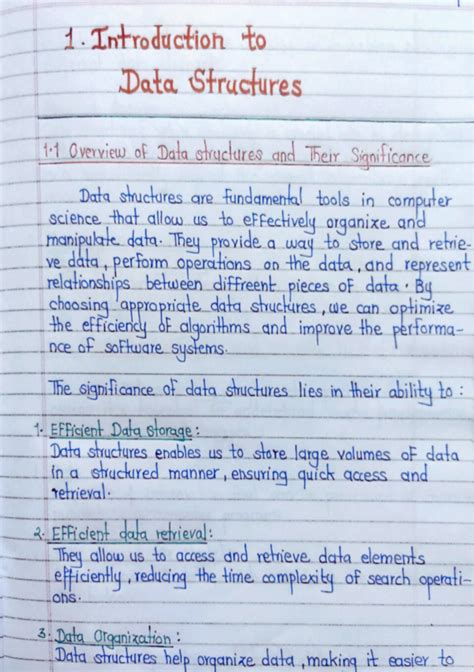 1. Introduction to
Data Structures
1.1 Overview of Data structures and Their Significance
Data structures are fundamental tools in computer
science that allow us to effectively organize and
manipulate data. They provide a way to store and retrie-
ve data, perform operations on the data, and represent
relationships between diffreent pieces of data. By
choosing appropriate data structures, we can optimize
the efficiency of algorithms and improve the performa-
nce of software systems.
The significance of data structures lies in their ability to :
1. Efficient Data storage :
Data structures enables us to store large volumes of data
in a structured manner, ensuring quick access and
retrieval.
2. Efficient data retrieval:
They allow us to access and retrieve data elements
efficiently, reducing the time complexity of search operati-
ons.
3. Data Organization :
Data structures help organize data, making it easier to